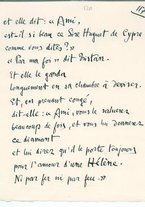 et elle dit : « Ami,
est-il si beau ce Sire Huguet de Cypre
comme vous dites ? »
« Par ma foi » dit Tristan.
Et elle le garda
longuement en sa chambre à deviser.
Et, en prenant congé,
dit-elle : « Ami vous le saluerez
beaucoup de fois, et vous lui donnerez
ce diamant
et lui direz qu'il le porte toujours
pour l'amour d'une Hélène.
Ni par fer ni par feu. »